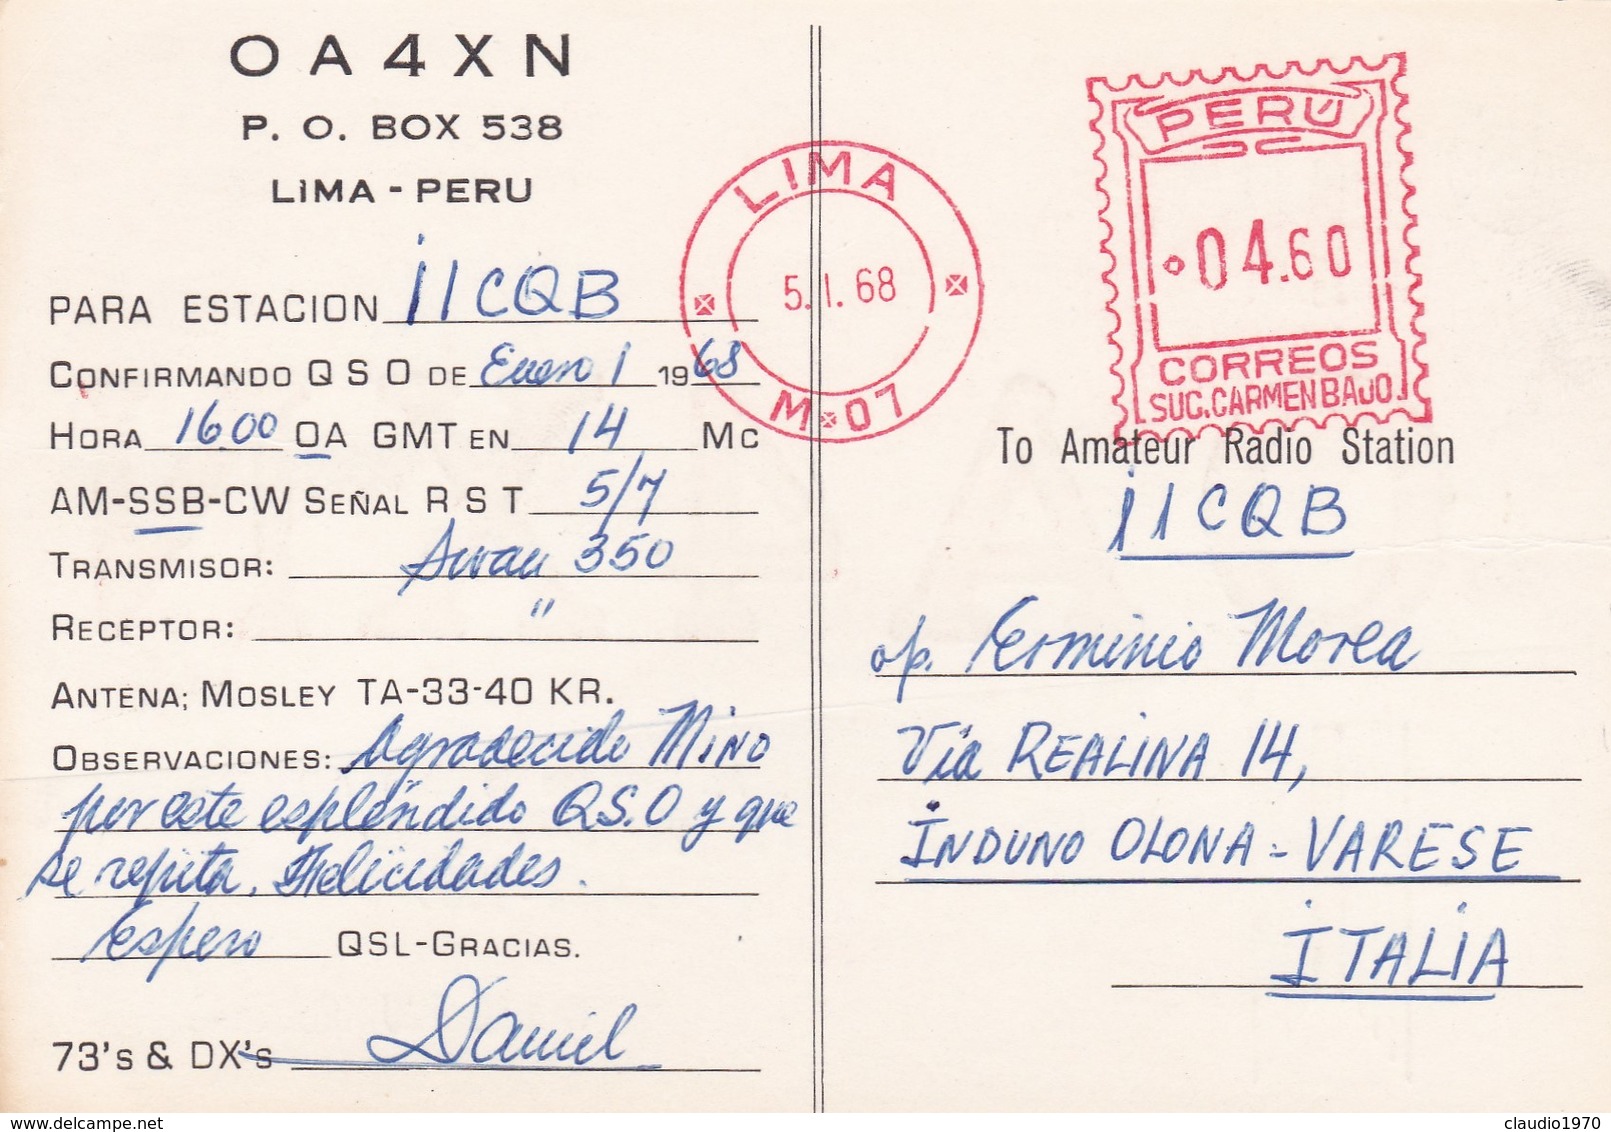 OA4XN
P. O. BOX 538
LIMA - PERU
PARA ESTACION i1CQB
CONFIRMANDO Q S O DE Enero 1 1968
HORA 16.00 OA GMT EN 14 MC
AM-SSB-CW SEÑAL R S T 5/7
TRANSMISOR: Swan 350
RECEPTOR: "
ANTENA; MOSLEY TA-33-40 KR.
OBSERVACIONES: Agradecido MINO
por este espléndido QS.O y que
se repita. Felicidades.
Espero QSL-GRACIAS.
73's & DX's Daniel
LIMA
5.I.68
M 07
PERÚ
04.60
CORREOS
SUC. CARMEN BAJO.
To Amateur Radio Station
i1CQB
op. Erminio Morea
Via REALINA 14,
INDUNO OLONA - VARESE
ITALIA
claudio1970